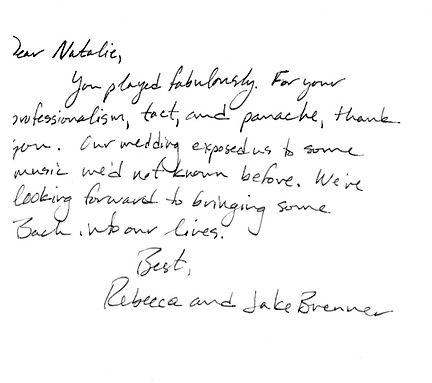 Dear Natalie,
You played fabulously. For your
professionalism, tact, and panache, thank
you. Our wedding exposed us to some
music we'd not known before. We're
looking forward to bringing some
Bach into our lives.
Best,
Rebecca and Jake Brenner